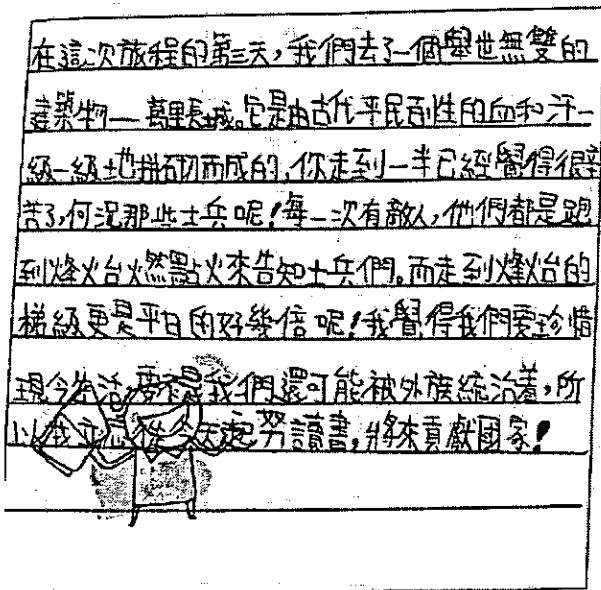 在這次旅程的第三天，我們去了一個舉世無雙的
建築物—萬里長城。它是由古代平民百性的血和汗一
級一級地拼砌而成的，你走到一半已經覺得很辛
苦了，何況那些士兵呢！每一次有敵人，他們都是跑
到烽火台燃點火來告知士兵們。而走到烽火台的
梯級更是平日的好幾倍呢！我覺得我們要珍惜
現今生活，要不是我們還可能被外族統治着，所
以我立志從今天起努讀書，將來貢獻國家！